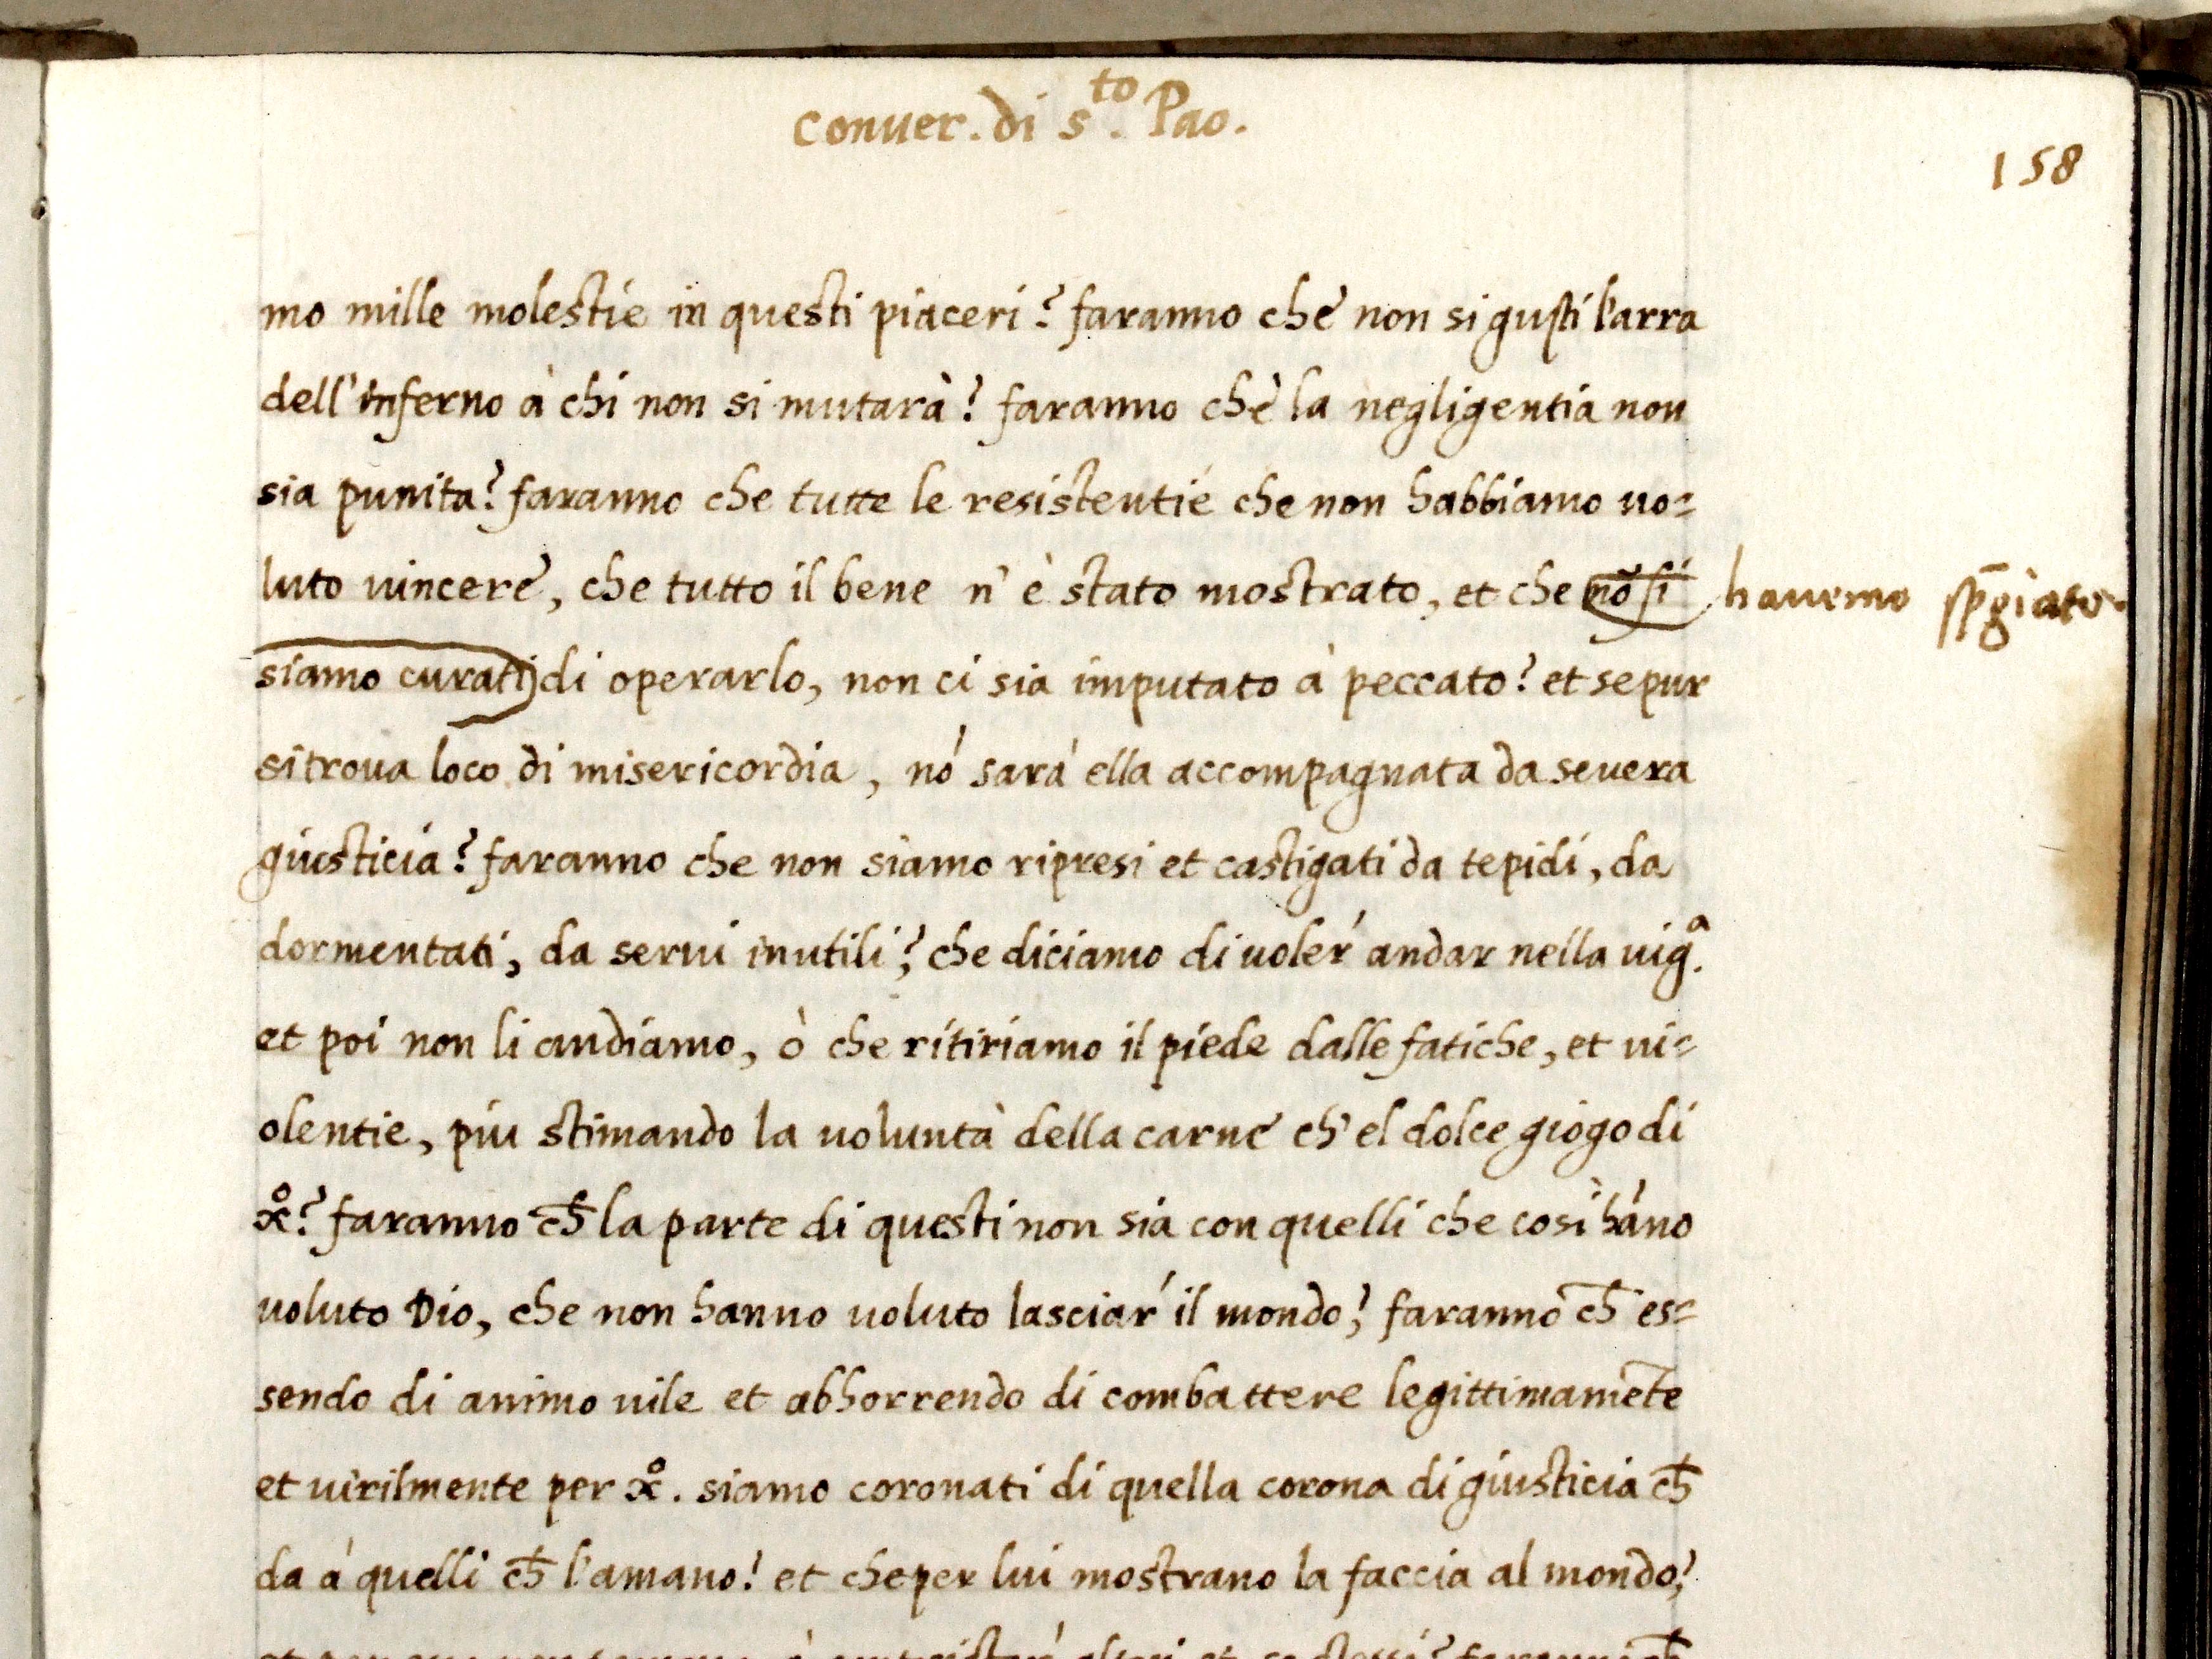 conuer. di s.to Pao.
158
mo mille molestie in questi piaceri? faranno che non si gusti l'arra
dell'inferno à chi non si mutarà? faranno chè la negligentia non
sia punita? faranno che tutte le resistentie che non habbiamo uo=
luto uincere, che tutto il bene n'è stato mostrato, et che nõ si
hauemo sp̄giato.
siamo curati di operarlo, non ci sia imputato à peccato? et se pur
si troua loco di misericordia, nó sará ella accompagnata da seuera
giusticia? faranno che non siamo ripresi et castigati da tepidi, da
dormentati, da serui inutili? che diciamo di uoler andar nella uig.a
et poi non li andiamo, ò che ritiriamo il piede dalle fatiche, et ui=
olentie, piu stimando la uoluntà della carne ch'el dolce giogo di
xo? faranno ch̄ la parte di questi non sia con quelli che cosi háno
uoluto Dio, che non hanno uoluto lasciar il mondo? faranno ch̄ es=
sendo di animo uile et abhorrendo di combattere legittimamēte
et uirilmente per xo. siamo coronati di quella corona di giusticia ch̄
da á quelli ch̄ l'amano! et che per lui mostrano la faccia al mondo?